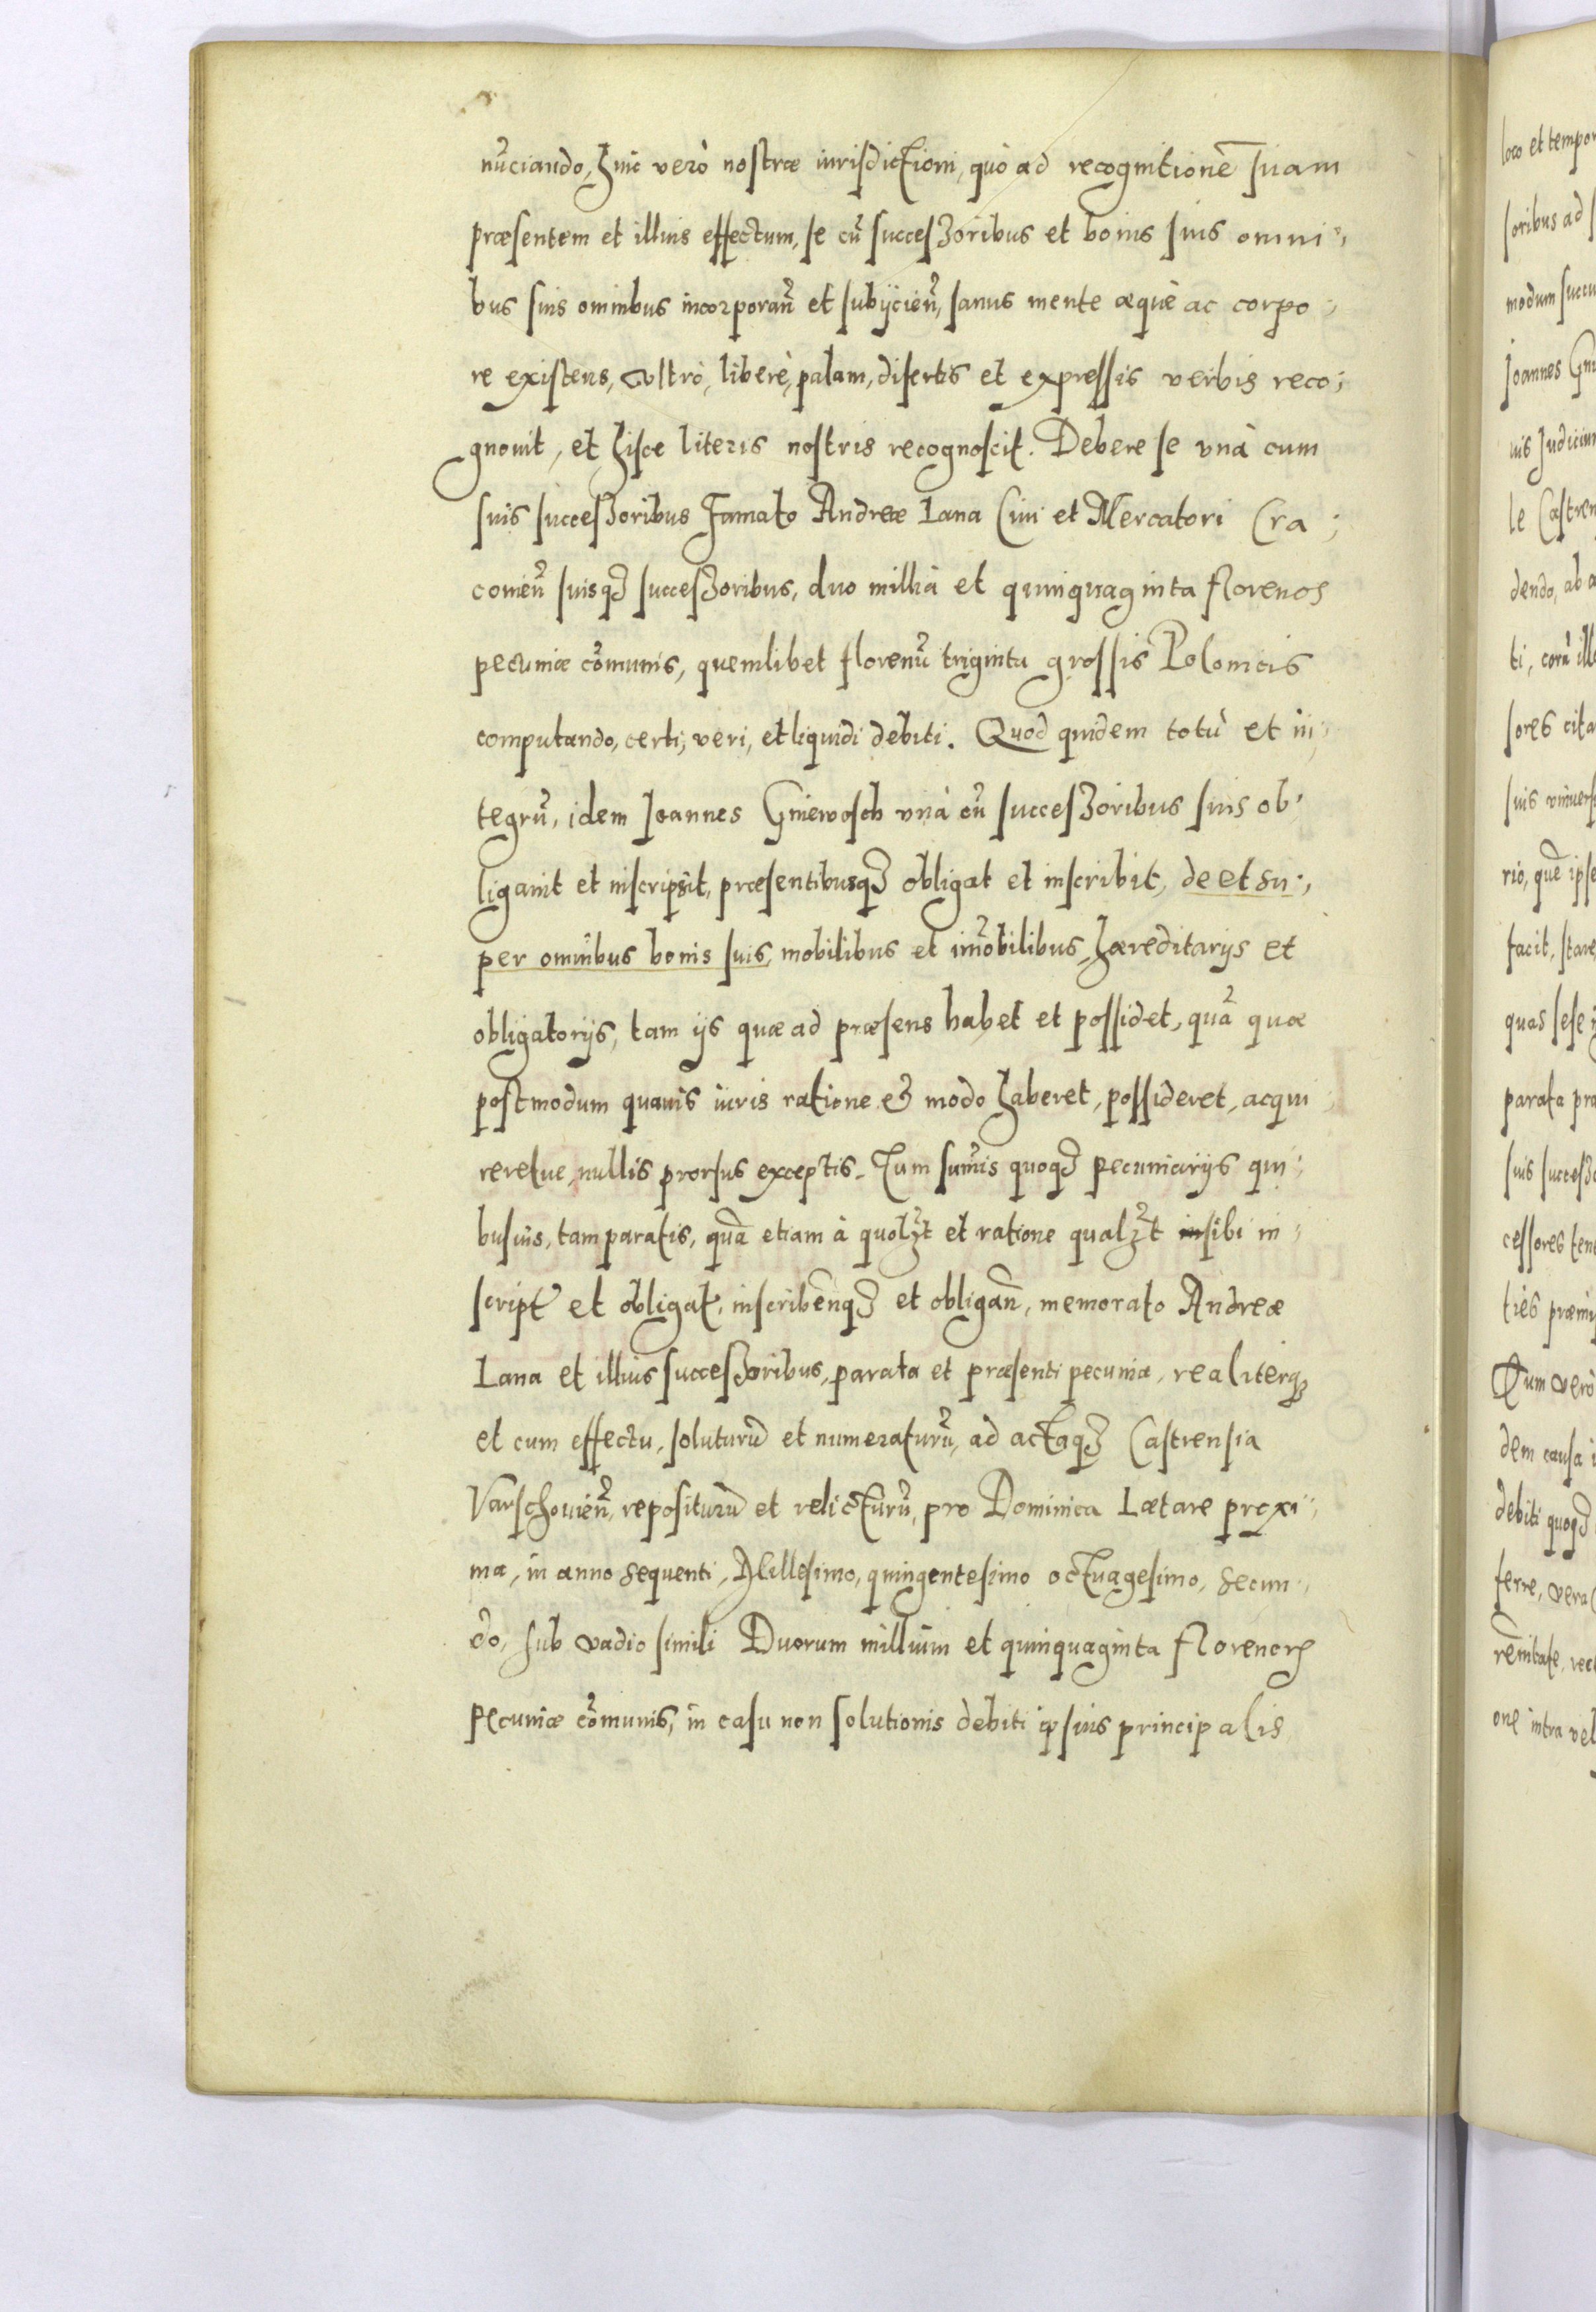 nūciando, huic verò nostræ iurisdictioni, quò ad recognitionē suam
præsentem et illius effectum, se cū successoribus et bonis suis omni
bus suis omnibus incorporan̄ et subijcien̄, sanus mente æquè ac corpo
re existens, vltrò, liberè, palam, disertis et expressis verbis reco
gnouit, et hisce literis nostris recognoscit. Debere se vnà cum
suis successoribus Famato Andreæ Lana Ciui et Mercatori Cra
couień suisqꝫ successoribus, duo millia et quinquaginta florenos
pecuniæ cōmunis, quemlibet florenū triginta grossis Polonicis
computando, certi, veri, et liquidi debiti. Quod quidem totū et in
tegrū, idem Joannes Gniewosch vnà cū successoribus suis ob
ligauit et inscripsit, præsentibusqꝫ obligat et inscribit, de et su
per omnibus bonis suis, mobilibus et imōbilibus, hæreditarijs et
obligatorijs, tam ijs quæ ad præsens habet et possidet, quā quæ
postmodum quauis iuris ratione et modo haberet, possideret, acqui
reretue, nullis prorsus exceptis. Tum sum̄is quoqꝫ pecuniarijs qui
busuis, tam paratis, quā etiam à quolꝫt et ratione qualꝫt in sibi in
script et obligat, inscribēnqꝫ et obligan̄, memorato Andreæ
Lana et illius successoribus, parata et præsenti pecuniæ, realiterqꝫ
et cum effectu, soluturū et numeraturū, ad actaqꝫ Castrensia
Varschouien̄, repositurū et relicturū, pro Dominica Lætare proxi
ma, in anno sequenti, Millesimo, quingentesimo octuagesimo, secun
do, sub vadio simili Duorum millium et quinquaginta florenorꝫ
pecuniæ cōmunis, in casu non solutionis debiti ipsius principalis
loco et tempor
soribus ad
modum succu
Joannes Gni
uis Judicium
le Castren
dendo, ab a
ti, corā ill
sores cita
suis vniuers
rio, quē ipse
facit, stare
quas sese
parata pra
suis success
cessores ten
ties præmi
Cum verò
dem causa i
debiti quoqꝫ
ferre, vera
rēnitate, rec
one intra vel